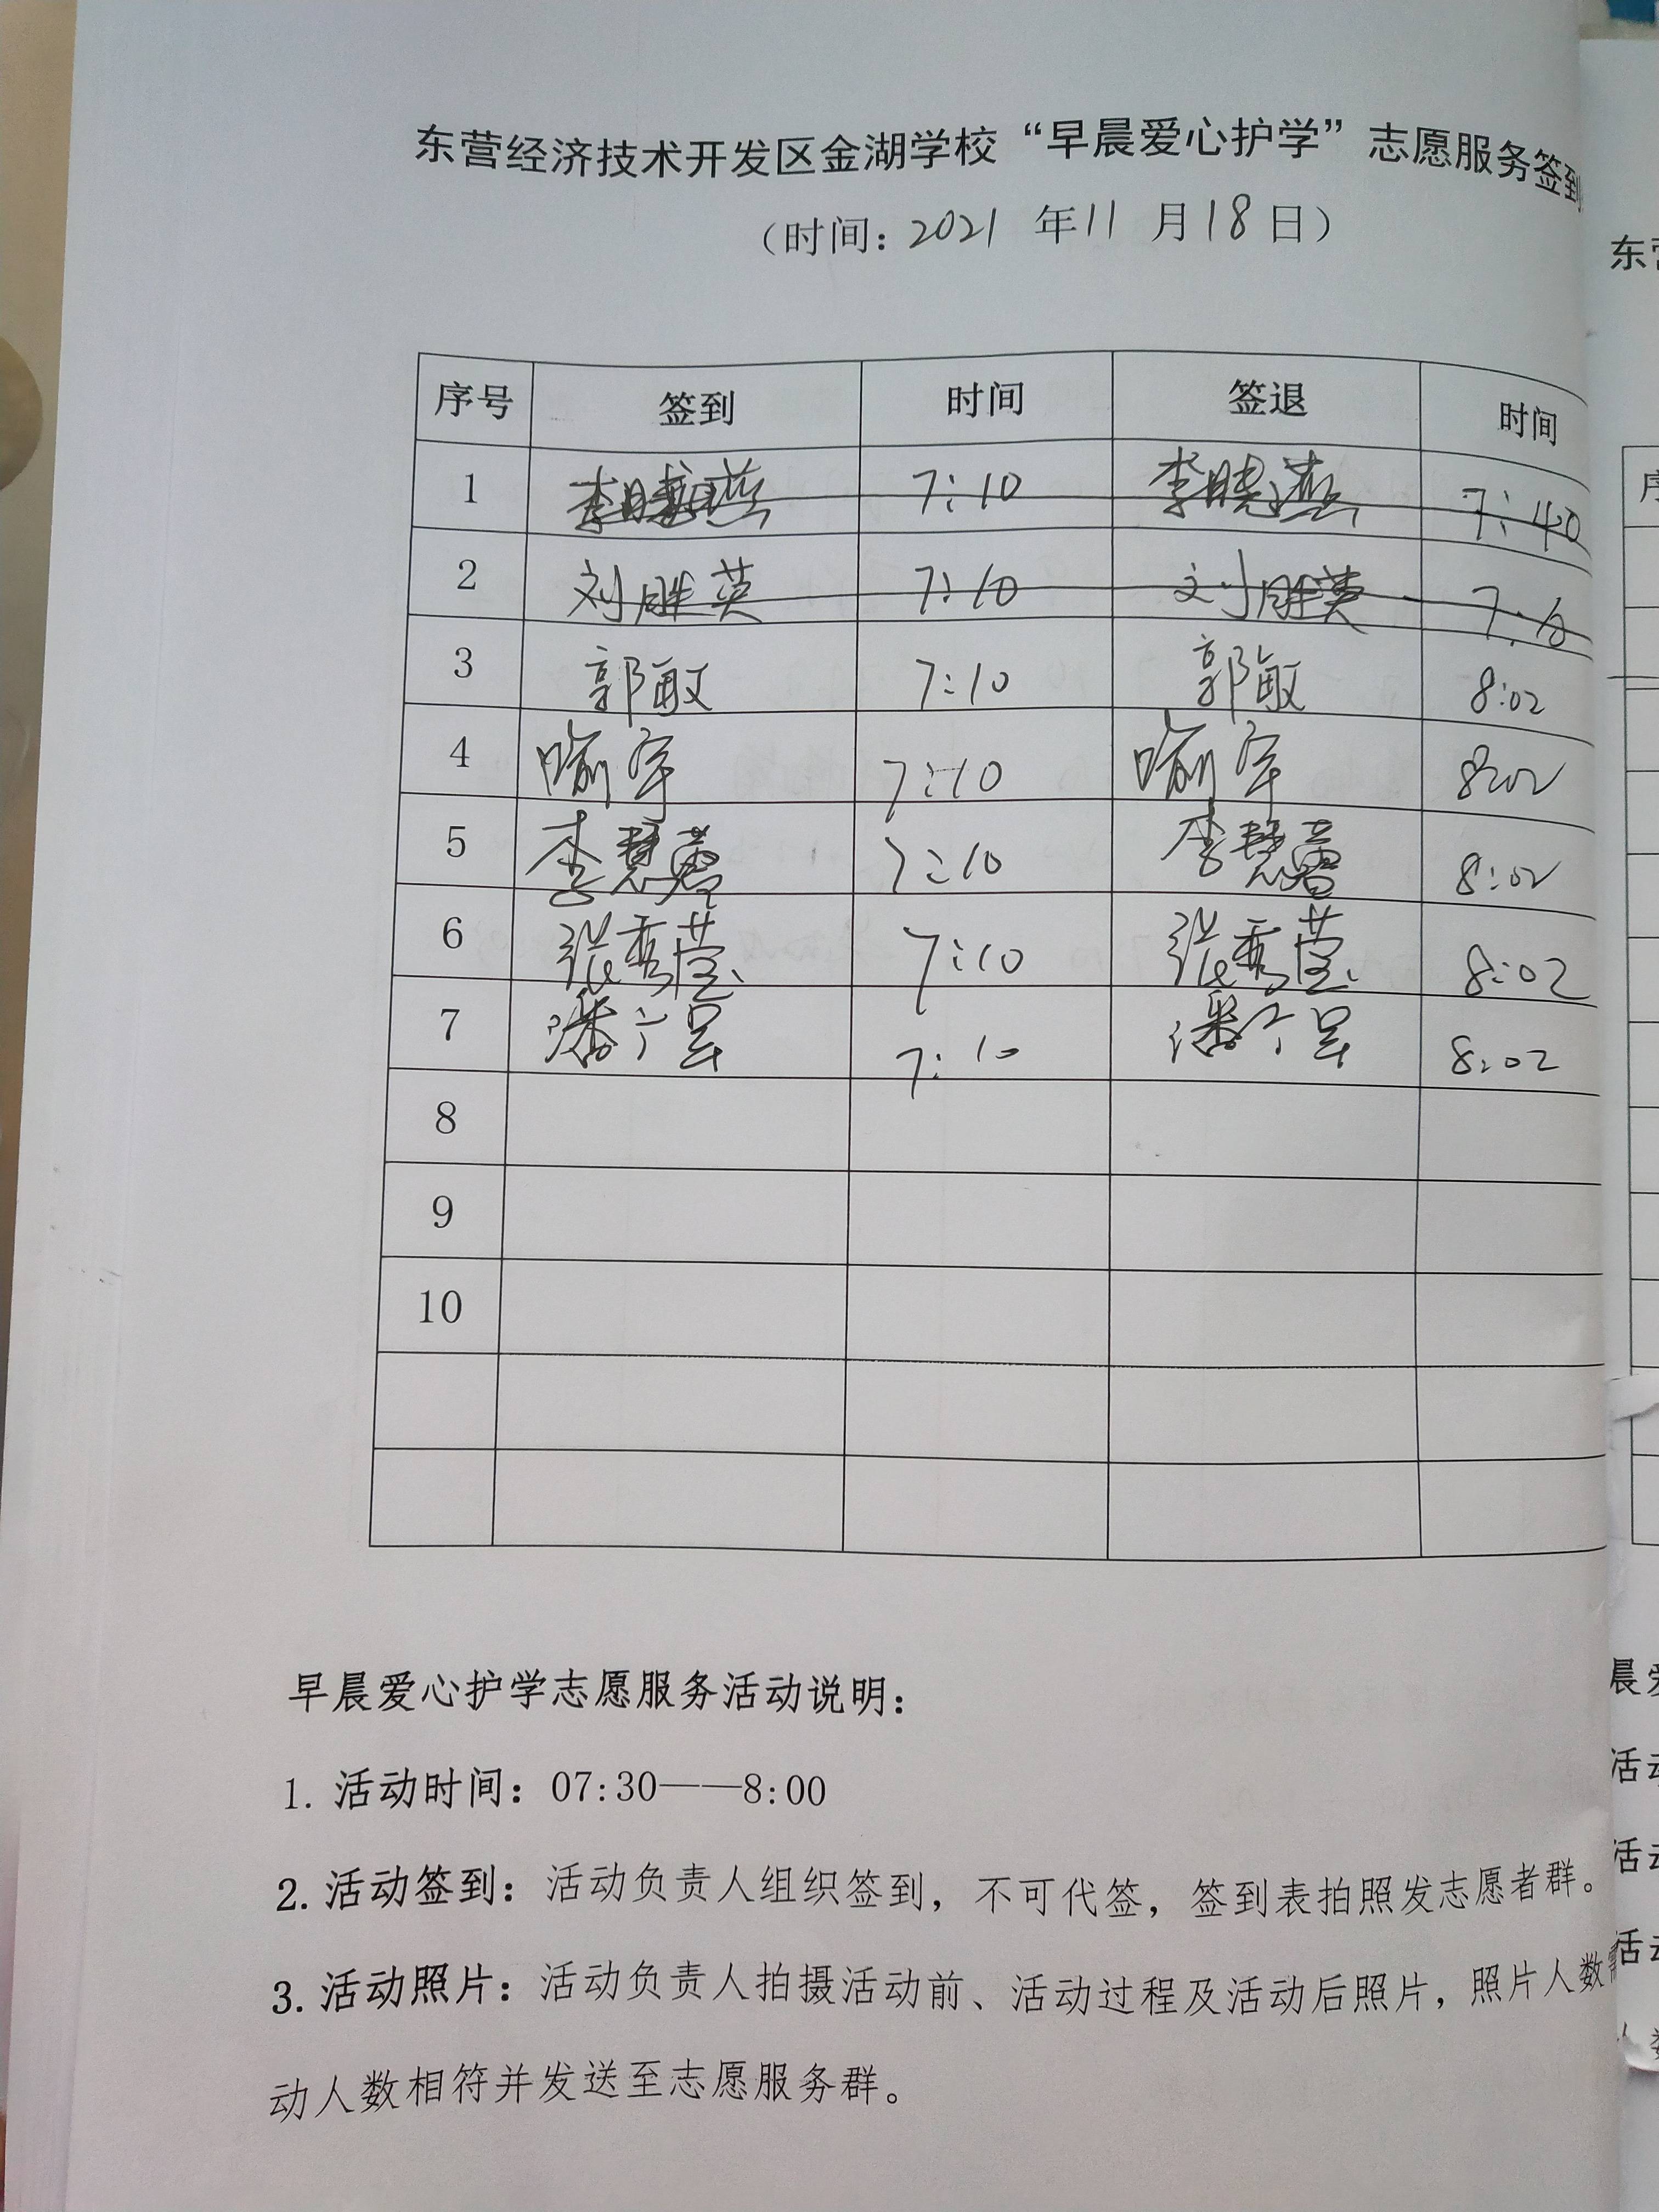 东营经济技术开发区金湖学校“早晨爱心护学”志愿服务签到
（时间：2021 年11 月18日）
序号 签到 时间 签退 时间
1 李晓燕 7:10 李晓燕 7:40
2 刘胜英 7:10 刘胜英
3 郭敏 7:10 郭敏 8:02
4 7:10 8:02
5 李慧 7:10 李慧 8:02
6 张秀莹 7:10 张秀莹 8:02
7 潘 7:10 潘 8:02
8
9
10
早晨爱心护学志愿服务活动说明：
1. 活动时间：07:30——8:00
2. 活动签到：活动负责人组织签到，不可代签，签到表拍照发志愿者群。
3. 活动照片：活动负责人拍摄活动前、活动过程及活动后照片，照片人数
动人数相符并发送至志愿服务群。